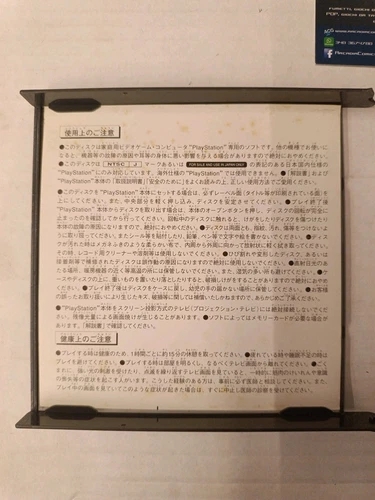 FUMETTI, GIOCHI
POP, GIOCHI DA
使用上のご注意
●このディスクは家庭用ビデオゲーム・コンピュータ"PlayStation"専用のソフトです。他の機種でお使いに
なると、機器等の故障の原因や耳等の身体に悪い影響を与える場合がありますので絶対におやめください。
●このディスクは NTSC J マークあるいは FOR SALE AND USE IN JAPAN ONLY の表記のある日本国内仕様の
"PlayStation"にのみ対応しています。海外仕様の"PlayStation"では使用できません。●「解説書」および
"PlayStation"本体の「取扱説明書」「安全のために」をよくお読みの上、正しい使用方法でご愛用ください。
●このディスクを"PlayStation"本体にセットする場合は、必ずレーベル面(タイトル等が印刷されている面)を
上にしてください。また、中央部分を軽く押し、ディスクを安定させてください。●プレイ終了後
"PlayStation"本体からディスクを取り出す場合は、本体のオープンボタンを押し、ディスクの回転が完全に
止まったのを確認してから行ってください。回転中のディスクに触れると、けがをしたりディスクを傷つけたり
本体の故障の原因になりますので、絶対におやめください。●ディスクは両面とも、指紋、汚れ、傷等をつけないよ
うに取り扱ってください。またシール等を貼付したり、鉛筆、ペン等で文字や絵を書かないでください。●ディス
クが汚れた時はメガネふきのような柔らかい布で、内側から外周に向かって放射状に軽く拭き取ってください。
その時、レコード用クリーナーや溶剤等は使用しないでください。●ひび割れや変形したディスク、あるいは
接着剤等で補修されたディスクは誤作動の原因になりますので絶対に使用しないでください。●直射日光のあ
たる場所、暖房機器の近く等高温の所には保管しないでください。また、湿気の多い所も避けてください。●ケ
ースやディスクの上に、重いものを置いたり落としたりすると、破損しけがをすることがありますので絶対におや
めください。●プレイ終了後はディスクをケースに戻し、幼児の手の届かない場所に保管してください。●お客様
の誤ったお取り扱いにより生じたキズ、破損等に関しては補償いたしかねますので、あらかじめご了承ください。
●"PlayStation"本体をスクリーン投影方式のテレビ(プロジェクション・テレビ)には絶対接続しないでくだ
さい。残像光量による画面焼けが生ずることがあります。●ソフトによってはメモリーカードが必要な場合が
あります。「解説書」で確認してください。
健康上のご注意
●プレイする時は健康のため、1時間ごとに約15分の休憩を取ってください。●疲れている時や睡眠不足の時は
プレイを避けてください。●プレイする時は部屋を明るくし、なるべくテレビ画面から離れてください。●ごく
まれに、強い光の刺激を受けたり、点滅を繰り返すテレビ画面を見ていると、一時的に筋肉のけいれんや意識
の喪失等の症状を起こす人がいます。こうした経験のある方は、事前に必ず医師と相談してください。また、
プレイ中の画面を見ていてこのような症状が起きた場合は、すぐに中止し医師の診察を受けてください。